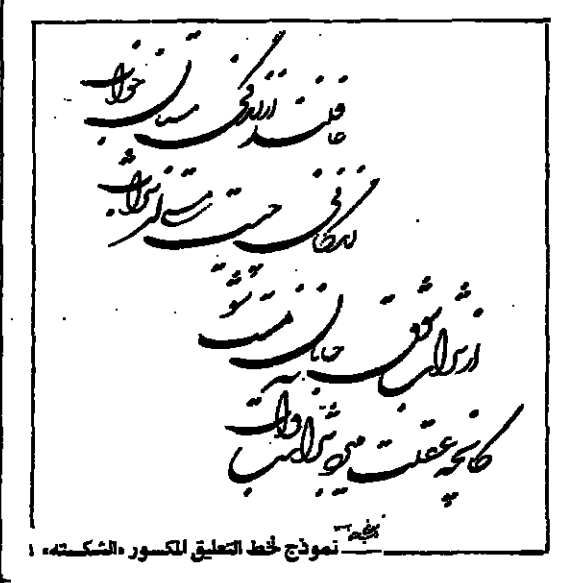 غافلند از زندگی مستان خواب
زندگانی چیست مستی از شراب
از شراب شوق جانان مست شو
کانچه عقلت میبرد شراست و آب
نموذج لخط التعليق المكسور «الشكسته»